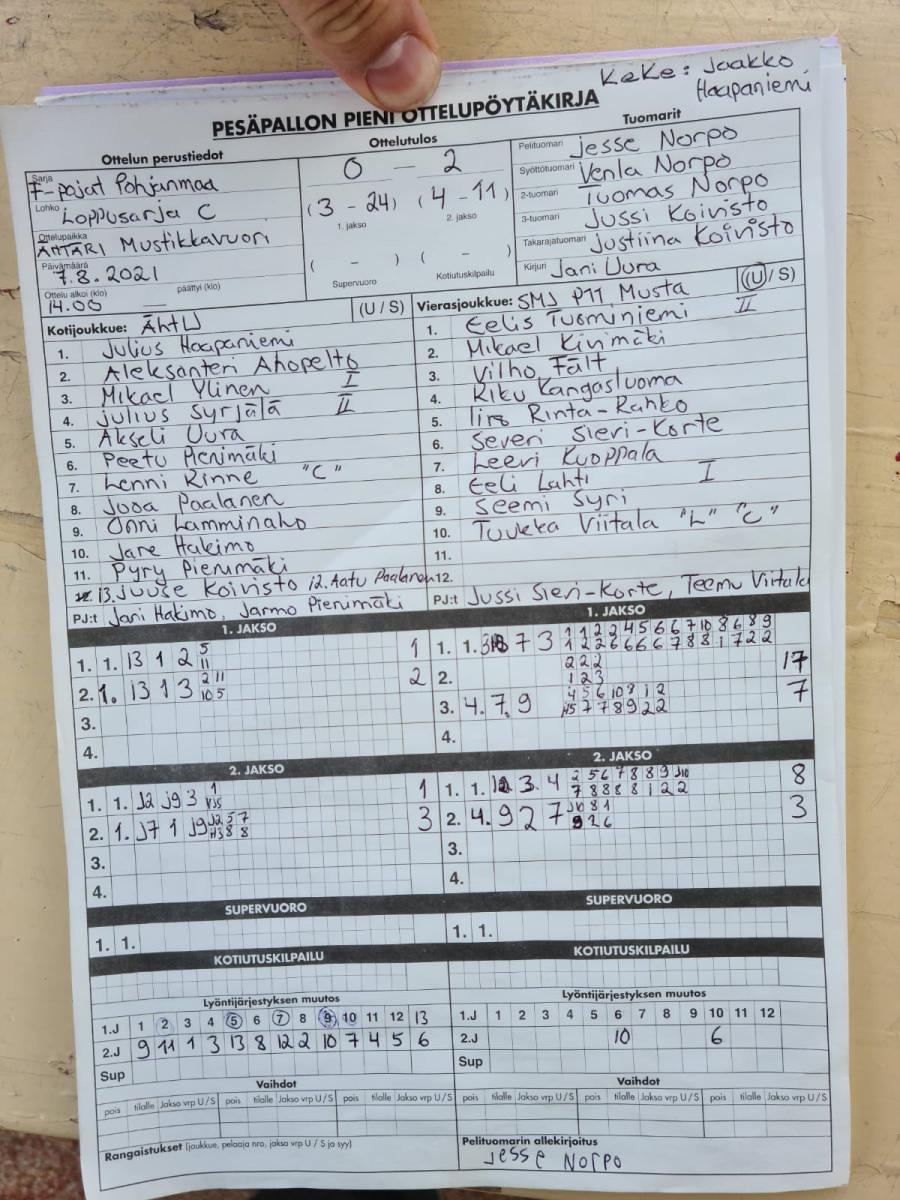 KeKe: Jaakko Haapaniemi
PESÄPALLON PIENI OTTELUPÖYTÄKIRJA
Ottelun perustiedot
Sarja F-pojat Pohjanmaa
Lohko Loppusarja C
Ottelupaikka ÄHTÄRI Mustikkavuori
Päivämäärä 7.8.2021
Ottelu alkoi (klo) 14.00 päättyi (klo) —
Ottelutulos
0 – 2
(3 - 24) (4 - 11)
1. jakso 2. jakso
( - ) ( - )
Supervuoro Kotiutuskilpailu
Tuomarit
Pelituomari Jesse Norpo
Syöttötuomari Venla Norpo
2-tuomari Tuomas Norpo
3-tuomari Jussi Koivisto
Takarajatuomari Justiina Koivisto
Kirjuri Jani Uura
Kotijoukkue: ÄhtU (U / S)
1. Julius Haapaniemi
2. Aleksanteri Ahopelto
3. Mikael Ylinen I
4. Julius Syrjälä II
5. Akseli Uura
6. Peetu Pienimäki
7. Lenni Rinne "C"
8. Jooa Paalanen
9. Onni Lamminaho
10. Jare Hakimo
11. Pyry Pienimäki
13. Juuse Koivisto 12. Aatu Paalanen
PJ:t Jani Hakimo, Jarmo Pienimäki
Vierasjoukkue: SMJ P11 Musta (U / S)
1. Eelis Tuominiemi II
2. Mikael Kivimäki
3. Vilho Fält
4. Riku Kangasluoma
5. Iiro Rinta-Rahko
6. Severi Sieri-Korte
7. Leevi Kuoppala
8. Eeli Lahti I
9. Seemi Syri
10. Tuukka Viitala "L" "C"
11.
12.
PJ:t Jussi Sieri-Korte, Teemu Viitala
1. JAKSO
1. 1. 13 1 2 5 11 1
2. 1. 13 1 3 2 11 10 5 2
3.
4.
2. JAKSO
1. 1. J2 J9 3 1 1
2. 1. J7 1 J9 J2 5 7 8 8 3
3.
4.
SUPERVUORO
1. 1.
KOTIUTUSKILPAILU
1. JAKSO
1. 1. 7 3 1 1 2 2 4 5 6 6 7 10 8 6 8 9
1 2 2 6 6 6 6 7 8 8 1 7 2 2
2. 2 2 2 17
1 2 3
3. 4. 7. 9 4 5 6 10 8 1 2 7
7 7 8 9 2 2
4.
2. JAKSO
1. 1. 3. 4 2 5 6 7 8 8 9 J10 8
7 8 8 8 8 1 2 2
2. 4. 9 2 7 J10 8 1 3
9 2 6
3.
4.
SUPERVUORO
1. 1.
KOTIUTUSKILPAILU
Lyöntijärjestyksen muutos
1.J 1 2 3 4 5 6 7 8 9 10 11 12 13
2.J 9 11 1 3 13 8 12 2 10 7 4 5 6
Sup
Vaihdot
pois tilalle Jakso vrp U/S pois tilalle Jakso vrp U/S pois tilalle Jakso vrp U/S
Rangaistukset (joukkue, pelaaja nro, jakso vrp U / S ja syy)
Lyöntijärjestyksen muutos
1.J 1 2 3 4 5 6 7 8 9 10 11 12
2.J 10 6
Sup
Vaihdot
pois tilalle Jakso vrp U/S pois tilalle Jakso vrp U/S pois tilalle Jakso vrp U/S
Pelituomarin allekirjoitus
Jesse Norpo